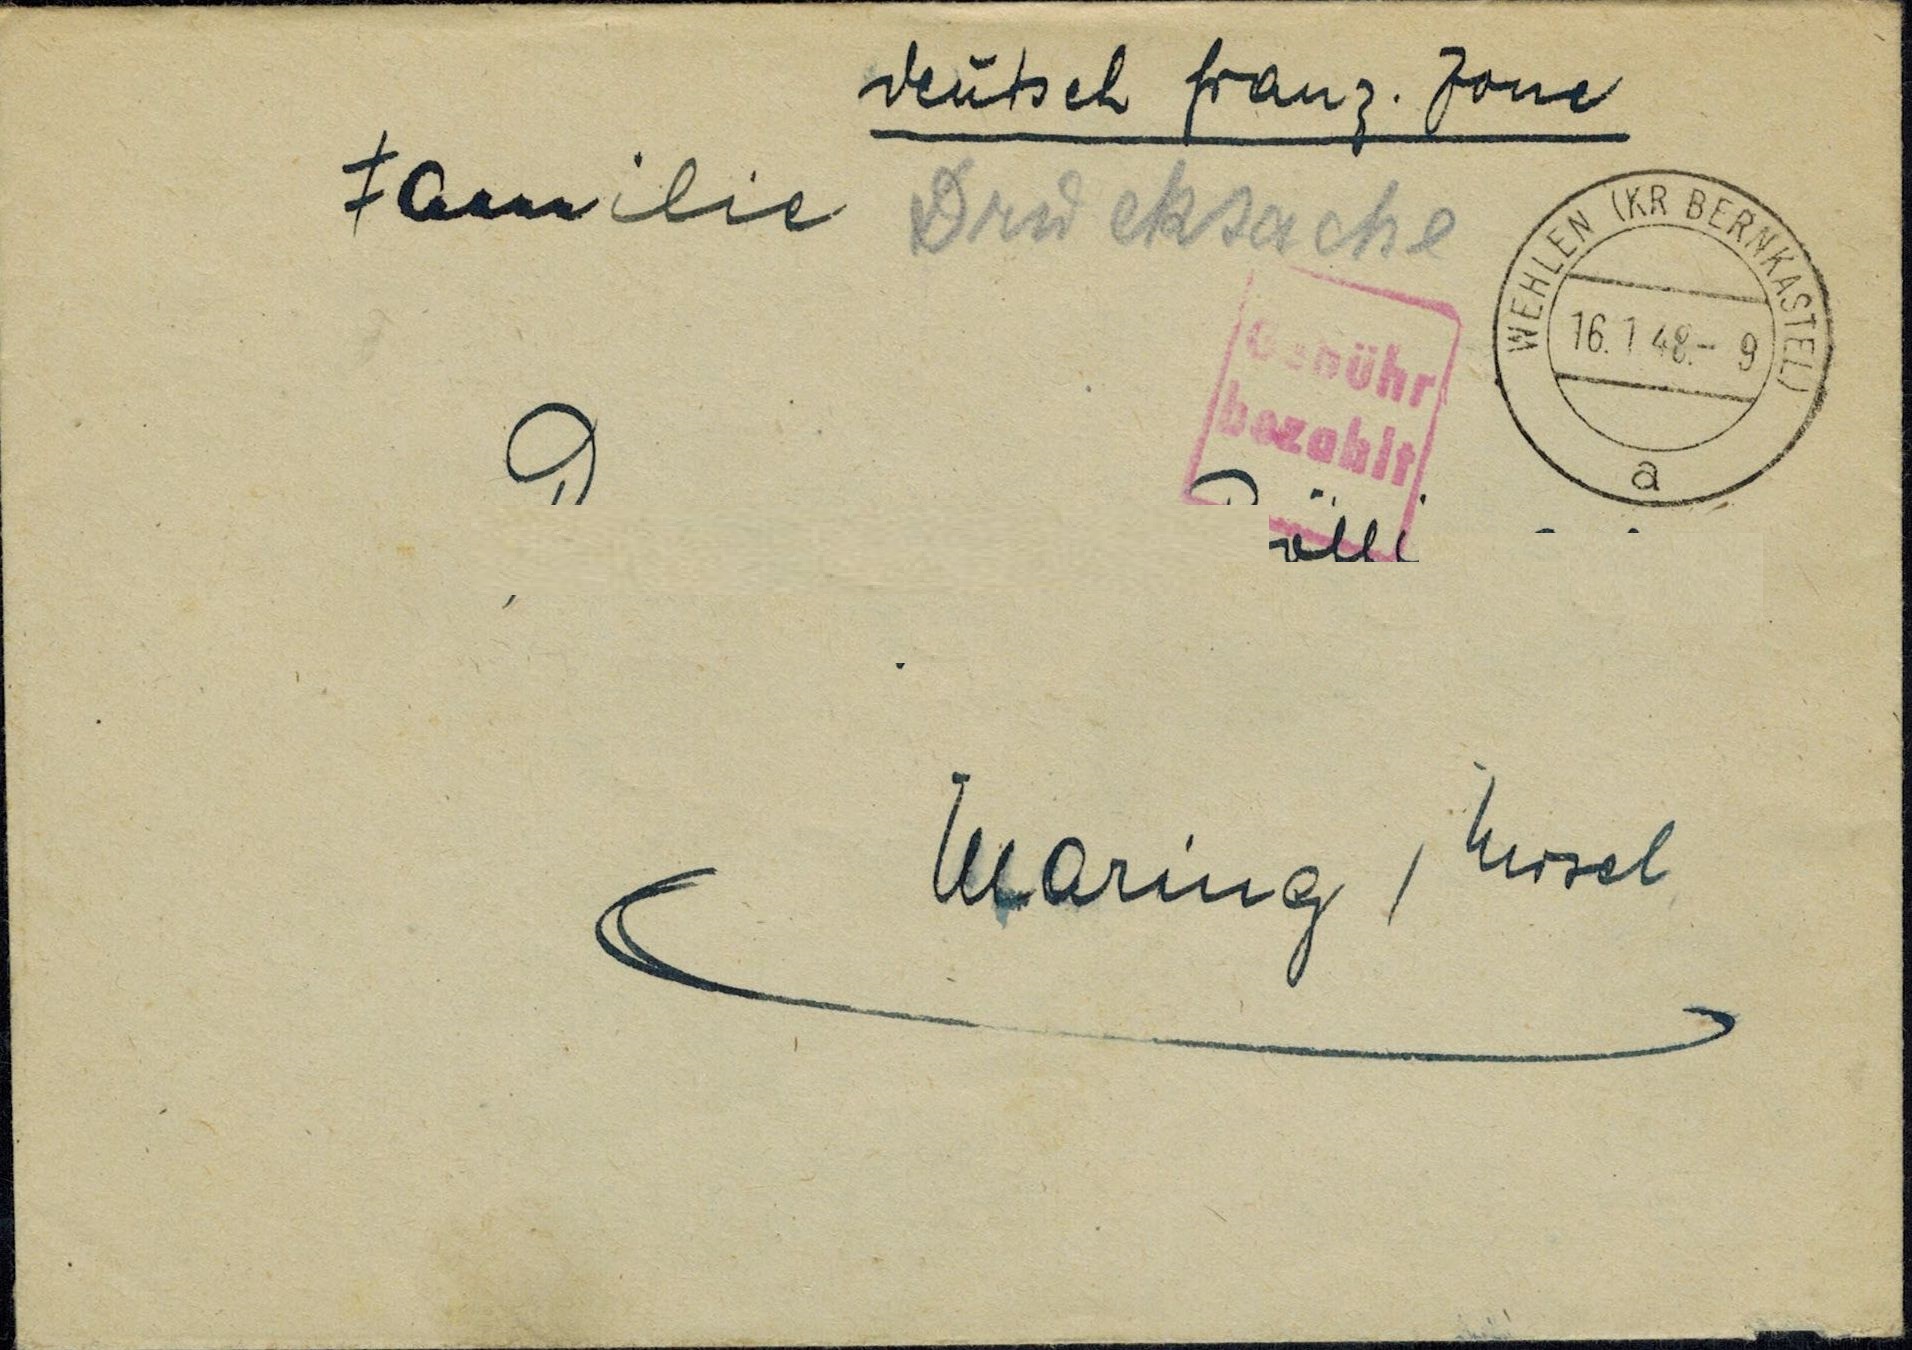 deutsch franz. Zone
Familie
Drucksache
WEHLEN (KR BERNKASTEL)
16.1.48.- 9
a
Gebühr
bezahlt
Maring / Mosel